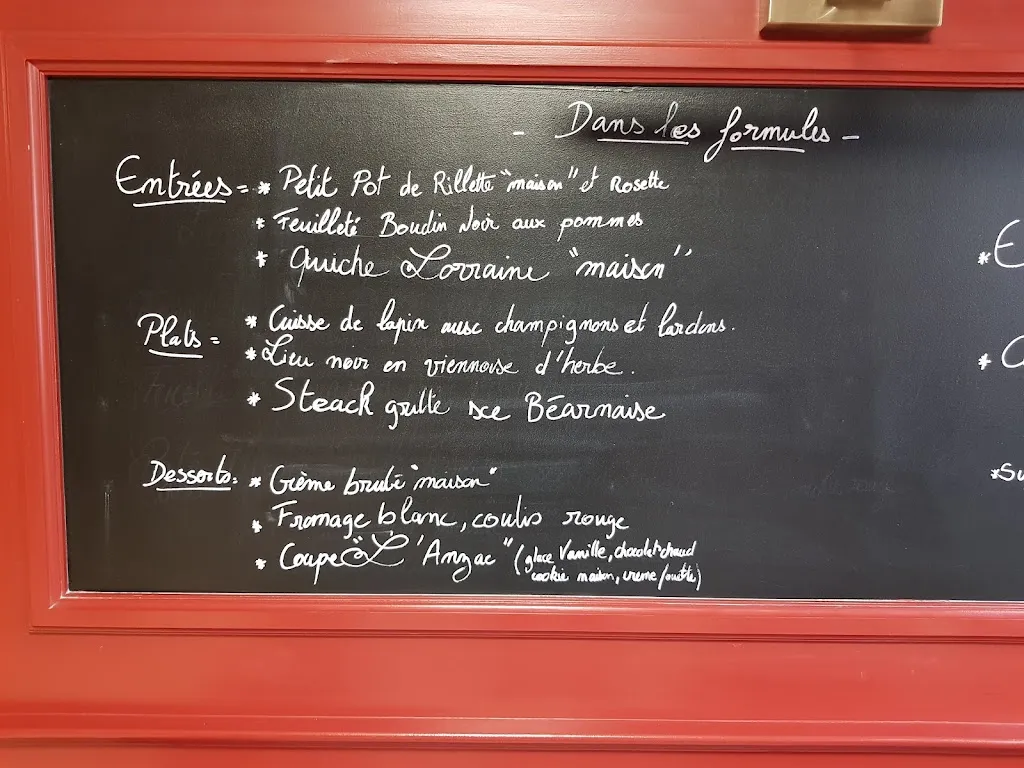 - Dans les formules -
Entrées = * Petit Pot de Rillette "maison" et Rosette
* Feuilleté Boudin Noir aux pommes
* Quiche Lorraine "maison"
Plats = * Cuisse de lapin aux champignons et lardons.
* Lieu noir en viennoise d'herbe.
* Steack grillé sce Béarnaise
Desserts = * Crème brulé "maison"
* Fromage blanc, coulis rouge
* Coupe "L'Anzac" (glace Vanille, chocolat chaud
cookie maison, creme fouettée)
* E
*
* Su